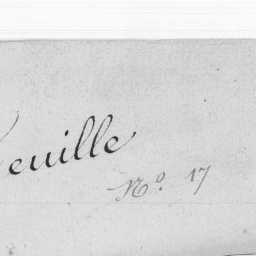 euille
N.º 17